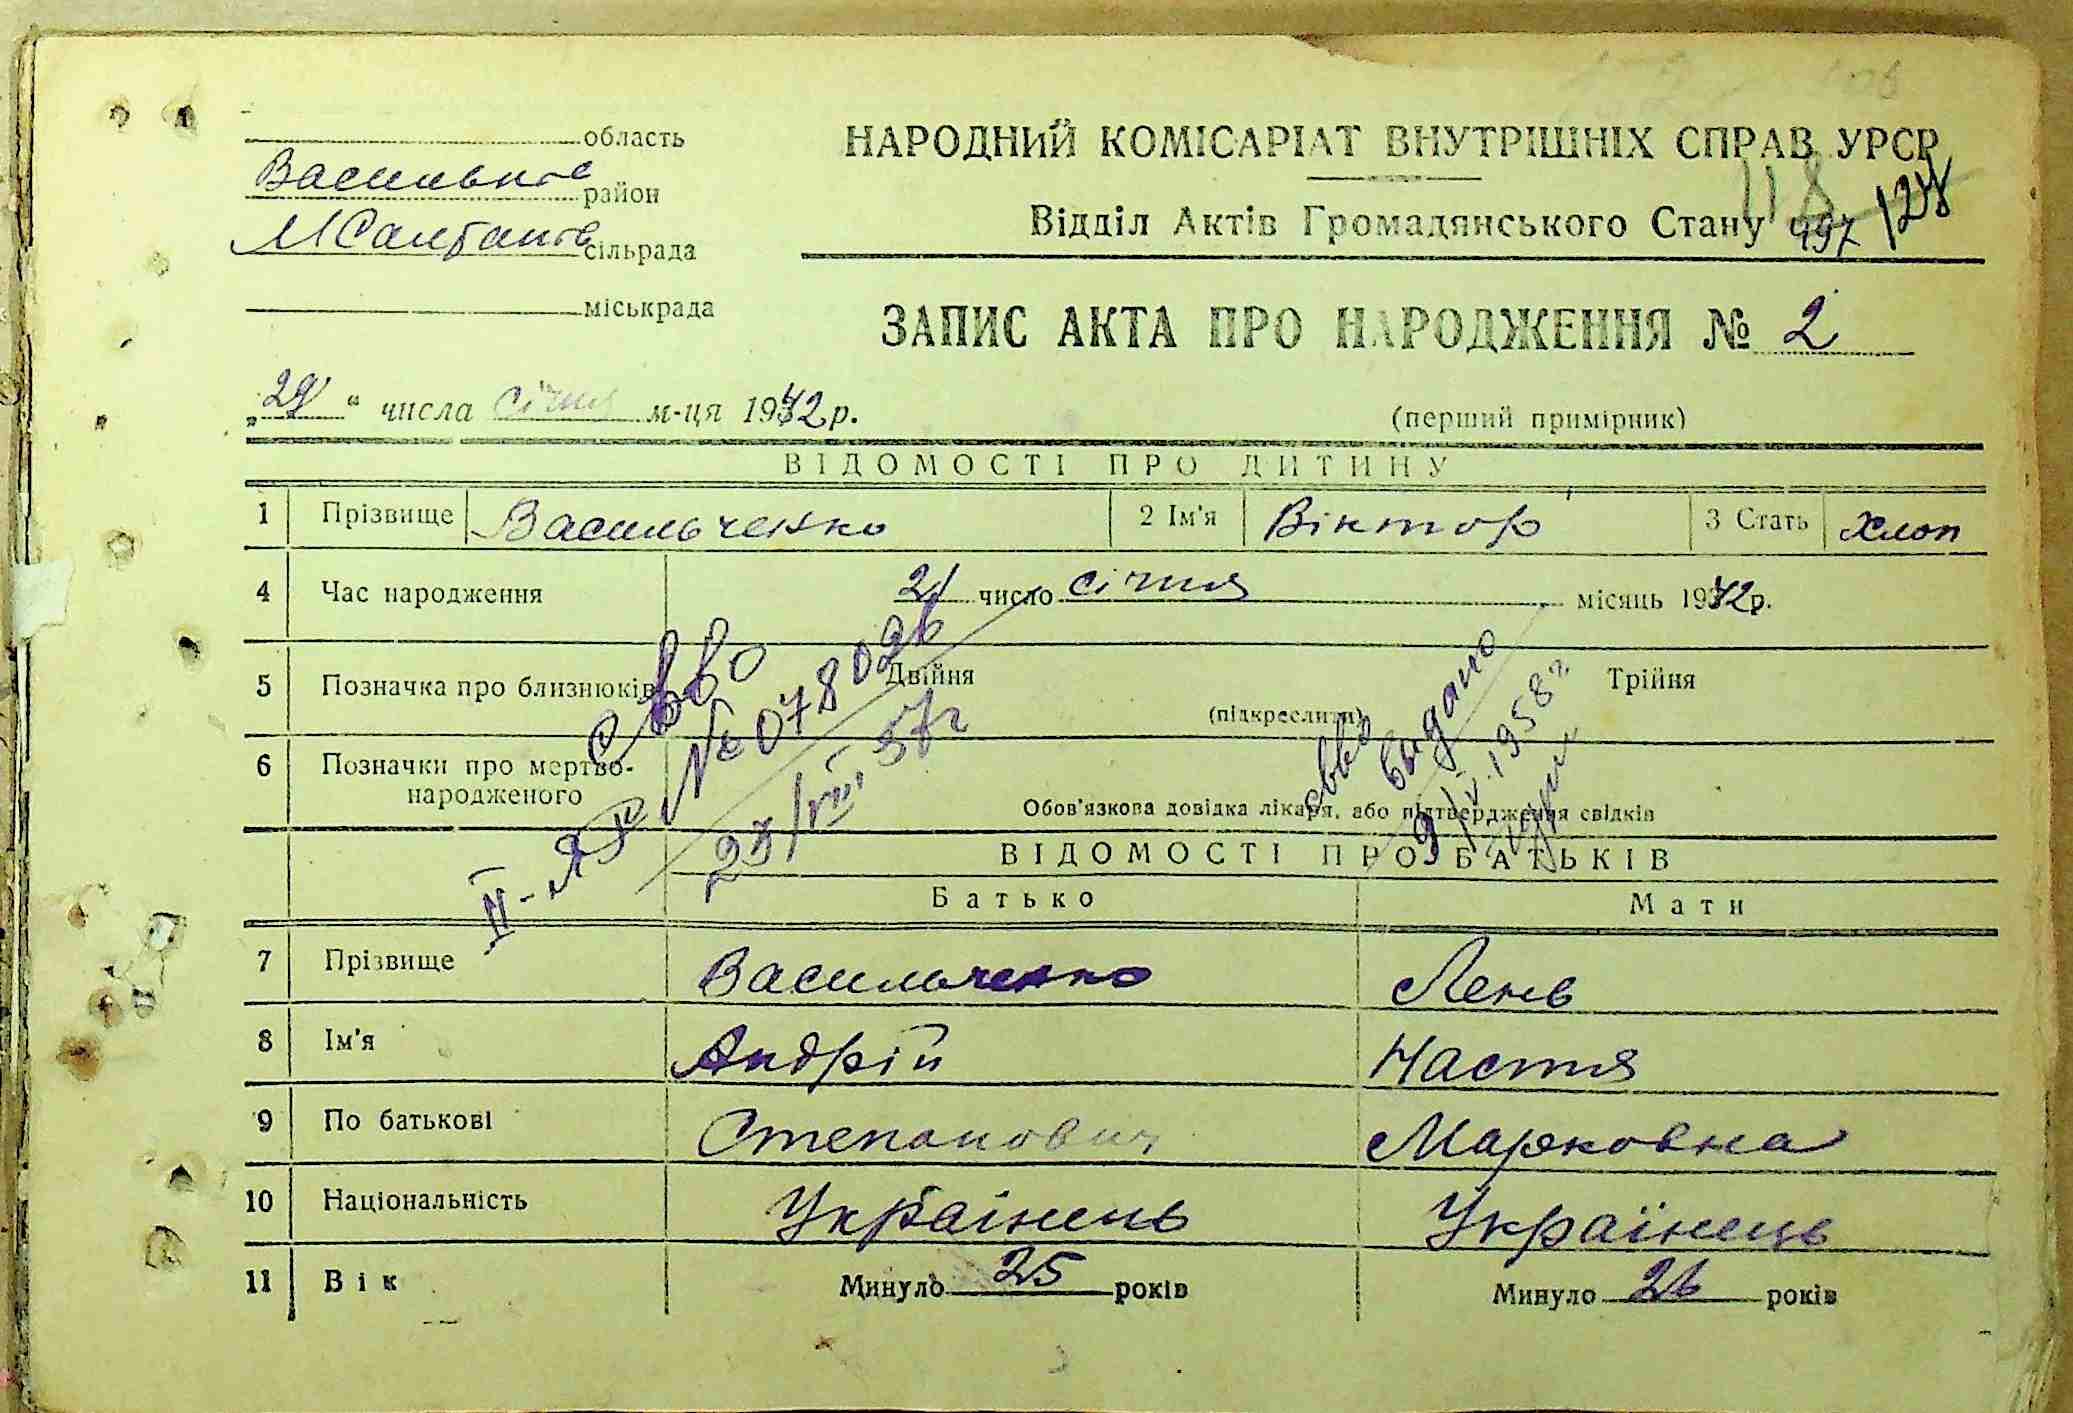 область
Васильків район
МСалтанів сільрада
міськрада
НАРОДНИЙ КОМІСАРІАТ ВНУТРІШНІХ СПРАВ УРСР
118
Відділ Актів Громадянського Стану 497 128
ЗАПИС АКТА ПРО НАРОДЖЕННЯ № 2
„29“ числа січня м-ця 1942р.
(перший примірник)
ВІДОМОСТІ ПРО ДИТИНУ
1 Прізвище Васильченко 2 Ім'я Віктор 3 Стать Хлоп
4 Час народження 21 число січня місяць 1942р.
5 Позначка про близнюків Двійня Трійня
(підкреслити)
6 Позначки про мертво-
народженого
Обов'язкова довідка лікаря, або підтвердження свідків
с вво
II-ЯР № 078026
23/VIII 57г
свво видано
9/IV.1958г
ВІДОМОСТІ ПРО БАТЬКІВ
Батько Мати
7 Прізвище Васильченко Лень
8 Ім'я Андрій Настя
9 По батькові Степанович Марковна
10 Національність Українець Українець
11 Вік Минуло 25 років Минуло 26 років